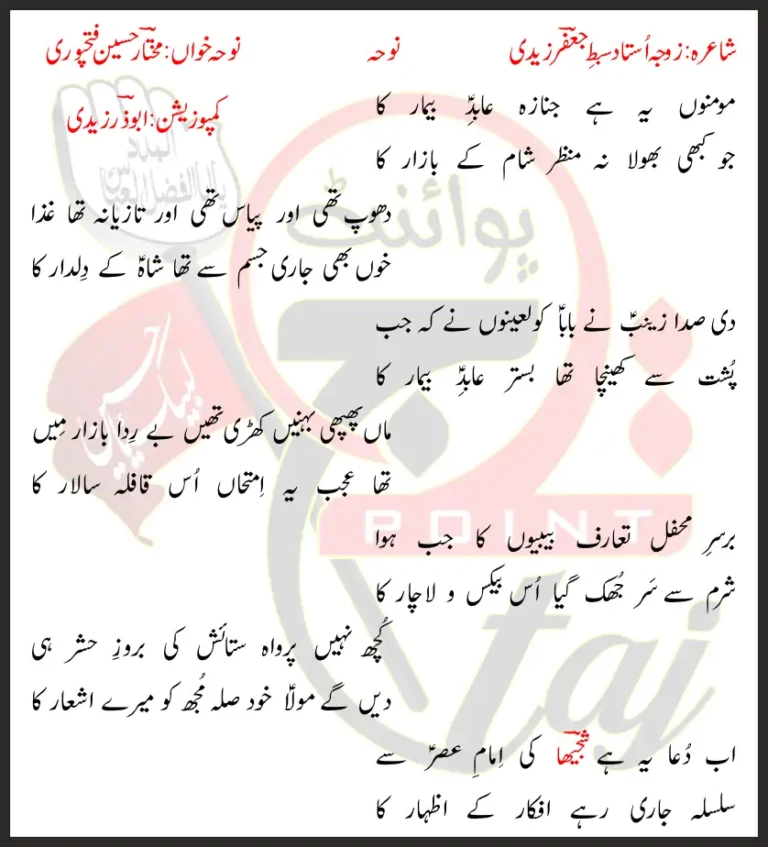 شاعرہ: زوجہ اُستاد سبطِ جعفرؔ زیدی نوحہ نوحہ خواں: مختارؔ حسین فتحپوری
کمپوزیشن: ابوذرؔ زیدی
مومنوں یہ ہے جنازہ عابدِؑ بیمار کا
جو کبھی بھولا نہ منظر شام کے بازار کا
دھوپ تھی اور پیاس تھی اور تازیانہ تھا غذا
خوں بھی جاری جسم سے تھا شاہؑ کے دِلدار کا
دی صدا زینبؑ نے باباؑ کو لعینوں نے کہ جب
پُشت سے کھینچا تھا بستر عابدِؑ بیمار کا
ماں پھپھی بہنیں کھڑی تھیں بے رِدا بازار مِیں
تھا عجب یہ اِمتحاں اُس قافلہ سالار کا
برسرِ محفل تعارف بیبیوں کا جب ہوا
شرم سے سَر جُھک گیا اُس بیکس و لاچار کا
کُچھ نہیں پرواہ ستائش کی بروزِ حشر ہی
دیں گے مولاؑ خود صلہ مُجھ کو میرے اشعار کا
اب دُعا یہ ہے کی اِمامِ عصرؑ سے
سلسلہ جاری رہے افکار کے اظہار کا
المدد
یا ابا الفضل العباس
لبیک یا حسین
پوائنٹ
POINT
taj